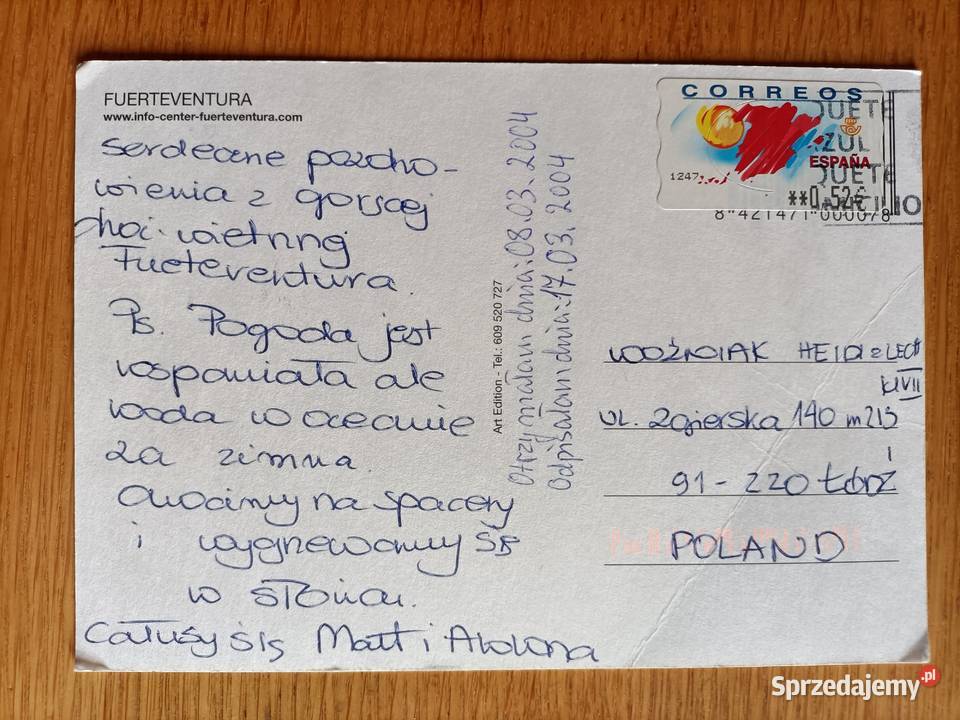 FUERTEVENTURA
www.info-center-fuerteventura.com
serdeczne pozdro-
wienia z gorącej
choć wietrznej
Fueteventura.
Ps. Pogoda jest
wspaniała ale
woda w oceanie
za zimna.
na spacery
i wygrzewamy się
w słońcu.
Całusy ślą Matt i
Art Edition - Tel.: 609 520 727
Otrzymałam dnia: 08.03.2004
Odpisałam dnia: 17.03.2004
CORREOS
ESPAÑA
1247
**0,52€
QUETE
AZUL
QUETE
8"421471"000078
WOŹNIAK HEIDI z LECH
KL VII
UL. Zgierska 140 m 215
91-220 ŁÓDŹ
POLAND
Sprzedajemy.pl